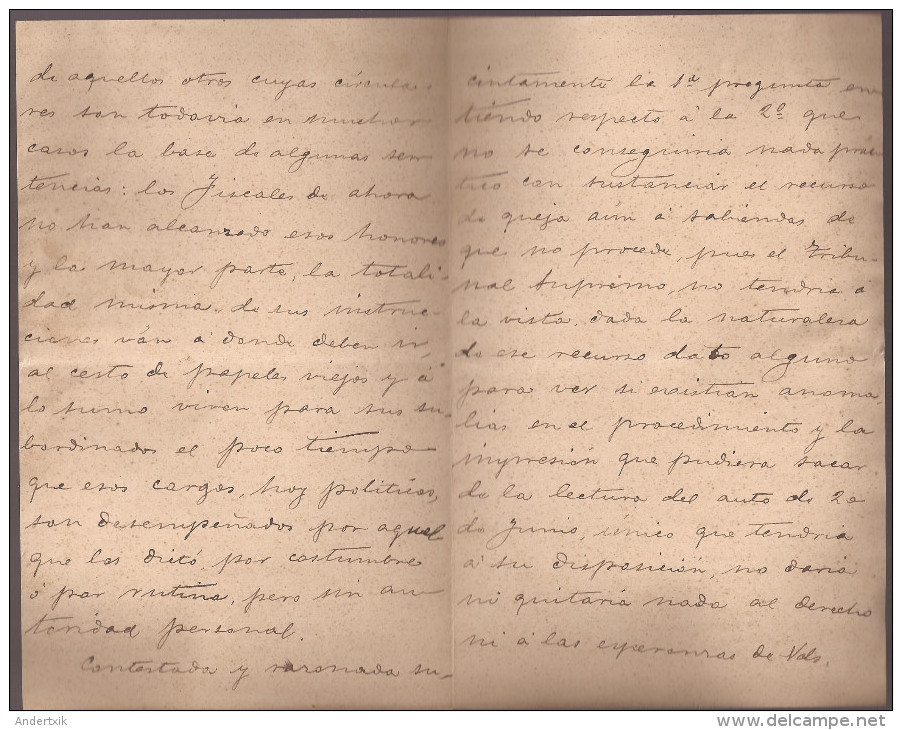 de aquellos otros cuyas circula-
res son todavía en muchos
casos la base de algunas sen-
tencias: los Fiscales de ahora
no han alcanzado esos honores
y la mayor parte, la totali-
dad misma de sus instruc-
ciones ván á donde deben ir,
al cesto de papeles viejos y á
lo sumo viven para sus su-
bordinados el poco tiempo
que esos cargos, hoy politicos,
son desempeñados por aquel
que las dictó por costumbre
ó por rutina, pero sin au-
toridad personal.
Contestada y razonada su-
cintamente la 1ª pregunta en-
tiendo respecto á la 2ª que
no se conseguiria nada prác-
tico con sustanciar el recurso
de queja aún á sabiendas de
que no procede, pues el Tribu-
nal Supremo, no tendria á
la vista, dada la naturaleza
de ese recurso dato alguno
para ver si existian anoma-
lias en el procedimiento y la
impresión que pudiera sacar
de la lectura del auto de 20
de Junio, único que tendria
á su disposición, no daria
ni quitaria nada al derecho
ni á las esperanzas de Vds.
Andertxik
www.delcampe.net